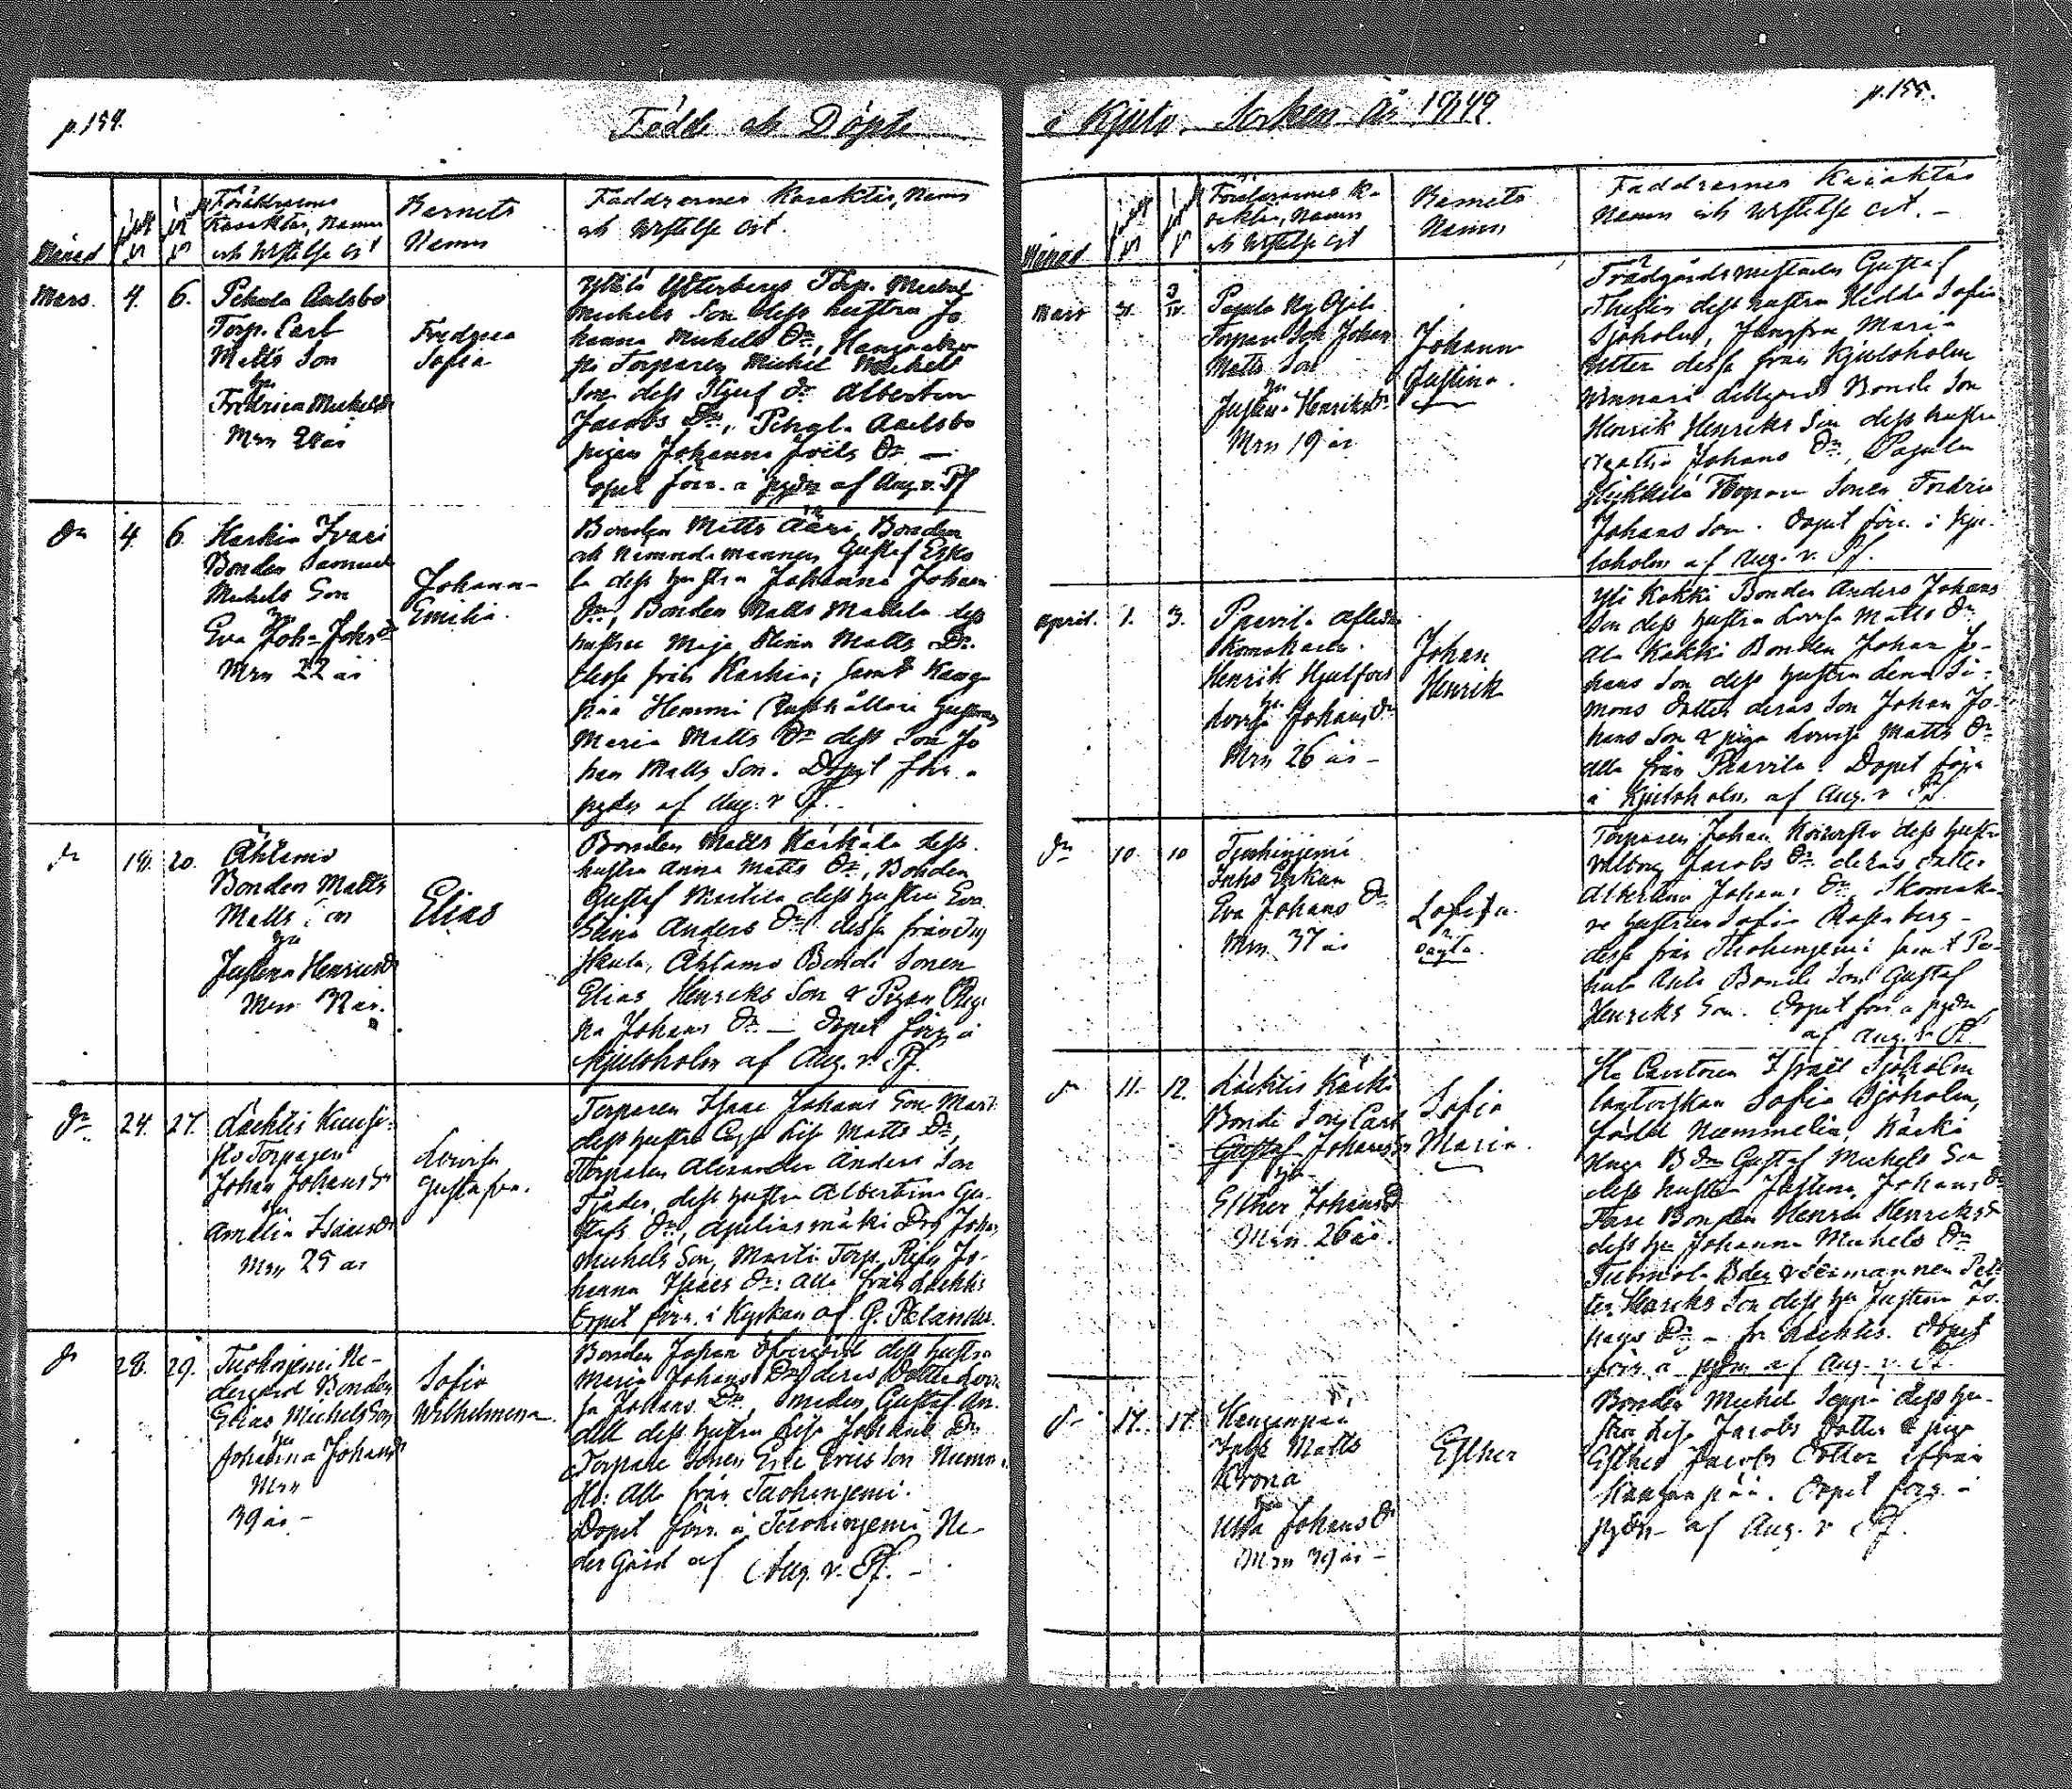 p. 154.
Födde och Döpte
Månad
Föräldrarnes
Karakter, Namn
och Wistelse ort
Barnets
Namn
Faddrarnes Karakter, Namn
och Wistelse ort.
Mars. 4. 6.
Torp. Carl
Matts Son
hu
Fredrica Michelsdr
Mrn 28 år
Fredrica
Sofia
Torp. Michel
Michels Son dess hustru Jo
hanna Michels Dr,
Torparen Michel Michels
Son dess Albertina
Jacobs Dr,
pigan Johanna Joëls Dr —
Dopet förr. a pgdn af Aug. v. Pf
Dn 4. 6.
Karhia Ivari
Bonden Samuel
Michels Son
hu
Eva Joh-a Johsdr
Mrn 22 år
Johanna
Emilia.
Bonden Matts Ääri, Bonden
och Nämndemannen Gustaf Esko
la dess hustru Johanna Johans
Dr, Bonden Matts Mattila dess
hustru Maja Stina Matts Dr.
desse från Karhia, samt Kangan
pää Hemmi Rusthållare hustrun
Maria Matts Dr dess Son Jo
han Matts Son. Dopet förr. a
pgdn af Aug. v. Pf.
Dn 19. 20.
Ahlamo
Bonden Matts
Matts Son
hu
Justina Henricsdr
Mrn 32 år.
Elias
Bonden Matts Härkälä dess
hustru Anna Matts Dr, Bonden
Gustaf Mattila dess hustru Eva
Stina Anders Dr dessa från
Ahlamo Bonde Sonen
Elias Henriks Son & Pigan Regi
na Johans Dr — Dopet förr. a
Kjuloholm af Aug. v. Pf.
Dn 24. 27.
Lächtis Kuusi-
sto Torparen
Johan Johans Sn
hu
Amalia Isaacsdr
Mrn 25 år
Lovisa
Gustafva.
Torparen Isaac Johans Son
dess hustru Lisa Matts Dr,
Torparen Alexander Anders Son
Fjäder, dess hustru Albertina Gu-
stafs Dr, Johan
Michels Son, Torp. Jo-
hanna Isaacs Dr: alla från Lächtis
Dopet förr. i Kyrkan af G. Pelander.
Dn 28. 29.
Tuohinjemi Ne-
dergård Bonden
Elias Michels Son
hu
Johanna Johansdr
Mrn
39 år —
Sofia
Wilhelmina.
Bonden Johan Öfvergård dess hustru
Maria Johans Dr, deras Dotter Lovi
sa Johans Dr, Smeden Gustaf An.
dell dess hustru Lisa Johans Dr
Torpare Sonen Eric Erics Son
alla från Tuohinjemi.
Dopet förr. a Tuohinjemi Ne-
der Gård af Aug. v. Pf. —
i Kjulo Socken År 1849.
p. 155.
Månad
Föräldrarnes Ka-
rakter, Namn
och Wistelse ort
Barnets
Namn
Faddrarnes Karakter
Namn och Wistelse ort. —
Mars 31.
Torpare Son Johan
Matts Son
hu
Justina Henriksdr
Mrn 19 år
Johanna
Justina.
Trädgårdsmästaren Gustaf
dess hustru Hedda Sofia
Sjöholm, Jungfru Maria
Utter dessa från Kjuloholm
Bonde Son
Henrik Henriks Son dess hustru
Johans Dr,
Torpare Sonen Fredric
Johans Son. Dopet förr. i Kju-
loholm af Aug. v. Pf.
April. 1. 3.
Paavila afledne
Skomakaren
Henrik Hjulfors
hu
Lovisa Johans Dr
Mrn 26 år —
Johan
Henrik
Yli Kakki Bonden Anders Johans
Son dess hustru Lovisa Matts Dr
Ala Kakki Bonden Johan Jo-
hans Son dess hustru Lena Si-
mons Dotter deras Son Johan Jo-
hans Son & piga Lovisa Matts Dr
alla från Paavila. Dopet förr.
a Kjuloholm af Aug. v. Pf
Dn 10. 10
Tuohinjemi
Inhs Enkan
Eva Johans Dr
Mrn 37 år
Sofia.
oägta.
Torparen Johan Koivisto dess hustru
Valborg Jacobs Dr deras Dotter
Albertina Johans Dr Skomaka-
re hustrun Sofia Rosenberg —
desse från Tuohinjemi samt
Bonde Son Gustaf
Henriks Son. Dopet förr. a pgdn
af Aug. v. Pf
Dn 11. 12.
Lächtis Kärki
Bonde Son Carl
Gustaf Johans Sn
hu
Esther Johans Dr
Mrn 26 år.
Sofia
Maria.
Hr Cantoren Israël Sjöholm
Cantorskan Sofia Sjöholm,
född Nummelin, Kärki
Bdn Gustaf Michels Son
dess hustru Justina Johans Dr
Bonden Henric Henricks Sn
dess hu Johanna Michels Dr
Bden & Sexmannen Pet-
ter Henriks Son dess hu Justina Jo-
hans Dr — fr Lächtis. Dopet
förr. a pgdn af Aug. v. Pf.
Dn 17. 17.
Kanganpää
Inhs Matts
Krona
hu
Ulla Johans Dr
Mrn 39 år —
Esther
Bonden Michel Seppä dess hu-
stru Lisa Jacobs Dotter & piga
Esther Jacobs Dotter ifrån
Kanganpää. Dopet förr. a
pgdn af Aug. v. Pf.